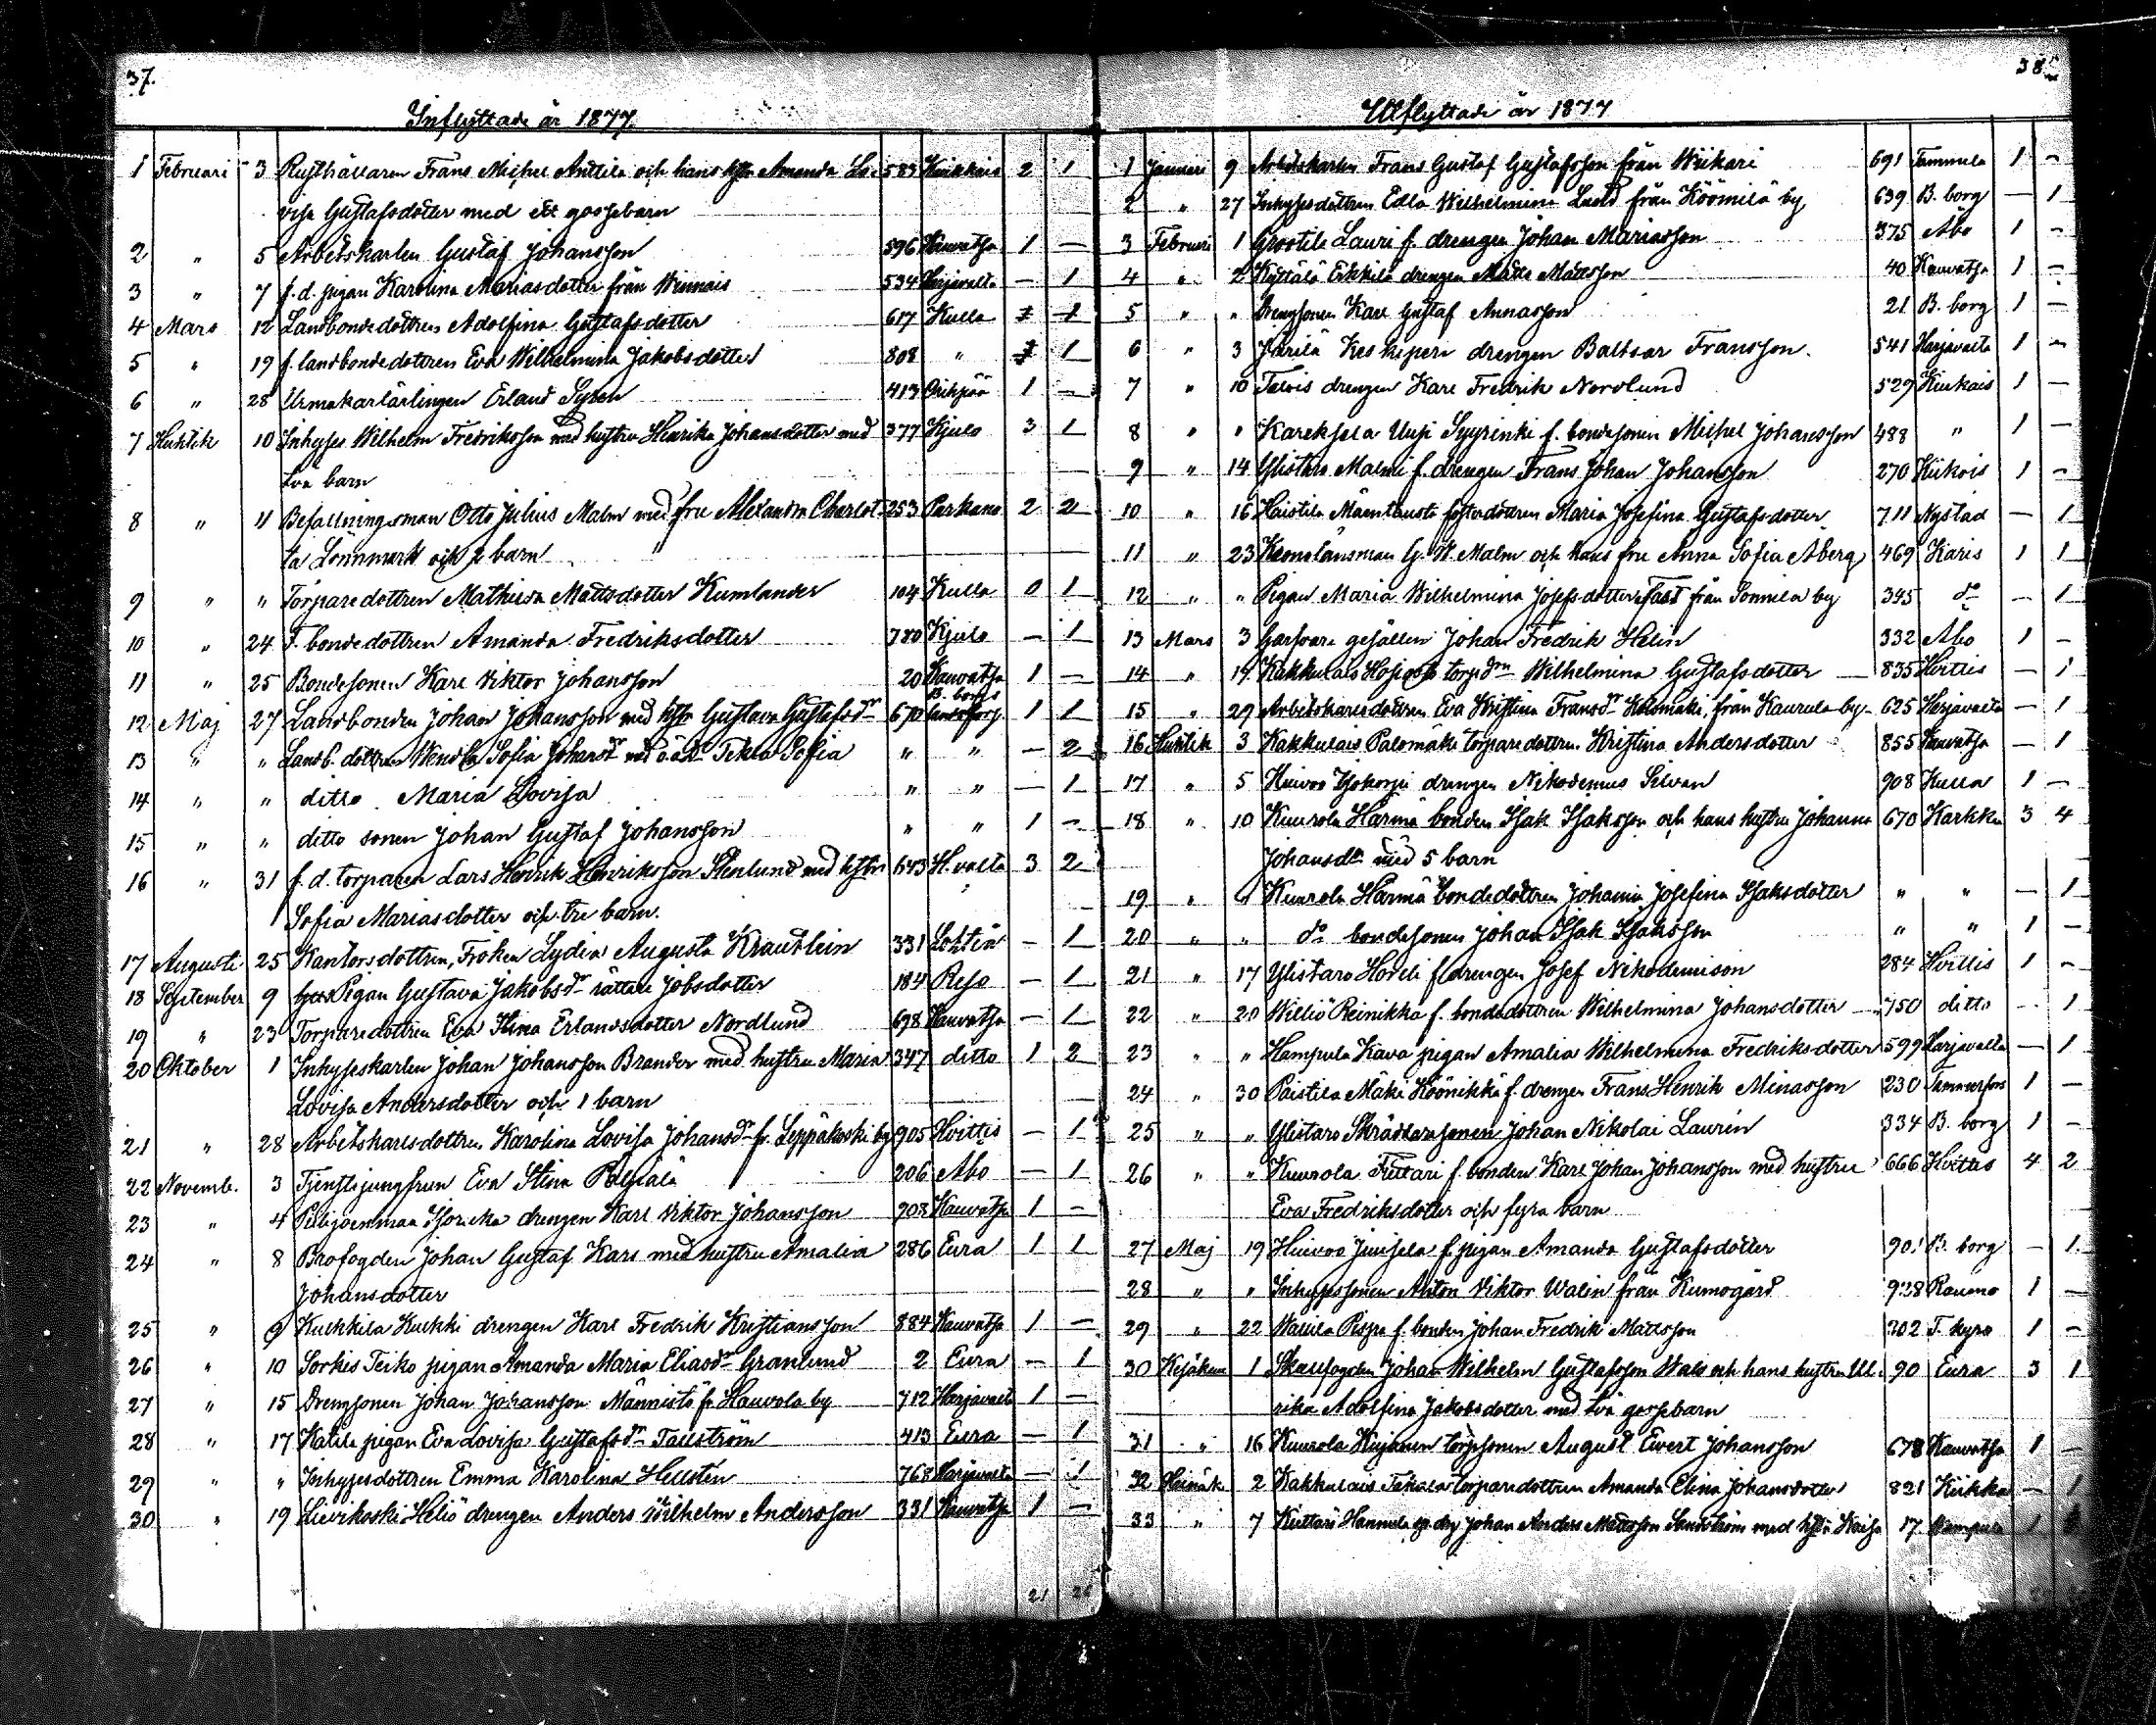 37.
Inflyttade år 1877.
1 Februari 3 Rusthållaren Frans Michel Anttila och hans hstr Amanda Lo- 583 Kiukkais 2 1
visa Gustafsdotter med ett gossebarn
2 " 5 Arbetskarlen Gustaf Johansson 596 Kauvatsa 1 —
3 " 7 f.d. pigan Karolina Mariasdotter från Winnais 534 Harjavalta — 1
4 Mars 12 Landbondedottren Adolfina Gustafsdotter 617 Kulla 1
5 " 19 f. landbondedottren Eva Wilhelmina Jakobsdotter 808 " 1
6 " 28 Urmakarlärlingen Erland Syren 413 1 —
7 Huhtik 10 Inhyses Wilhelm Fredriksson med hustru Henrika Johansdotter med 377 Kjulo 3 1
två barn
8 " 11 Befallningsman Otto Julius Malm med fru Alexandra Charlot- 253 Parkano 2 2
ta Lönnmark och 2 barn
9 " " Torparedottren Mathilda Mattsdotter Kumlander 104 Kulla 0 1
10 " 24 F. bondedottren Amanda Fredriksdotter 780 Kjulo — 1
11 " 25 Bondesonen Karl Viktor Johansson 20 Kauvatsa 1 —
12 Maj 27 Landbonden Johan Johansson med hstr Gustava Gustafsdr 670 B. borgs landsförs. 1 1
13 " " Landb. dottren Wendla Sofia Johansdr med Tekla Sofia " " — 2
14 " " ditto Maria Lovisa " " — 1
15 " " ditto sonen Johan Gustaf Johansson " " 1 —
16 " 31 f.d. torparen Lars Henrik Henriksson Stenlund med hstr 643 H.valta 3 2
Sofia Mariasdotter och tre barn.
17 Augusti 25 Kantorsdottren, Fröken Lydia Augusta Krautlein 331 Lohteå — 1
18 September 9 Pigan Gustava Jakobsdr rättare Jobsdotter 184 Reso — 1
19 " 23 Torparedottren Eva Stina Erlandsdotter Nordlund 698 Kauvatsa — 1
20 Oktober 1 Inhyseskarlen Johan Johansson Brander med hustru Maria 347 ditto 1 2
Lovisa Andersdotter och 1 barn
21 " 28 Arbetskarlsdottren Karolina Lovisa Johansdr fr. Leppäkoski by 905 Hvittis — 1
22 Novemb. 3 Tjenstejungfrun Eva Stina 206 Abo — 1
23 " 4 drengen Karl Viktor Johansson 908 Kauvatsa 1 —
24 " 8 Brofogden Johan Gustaf Kars med hustru Amalia 286 Eura 1 1
Johansdotter
25 " 9 Kukkila Kukki drengen Karl Fredrik Kristiansson 884 Kauvatsa 1 —
26 " 10 Sorkis Teiko pigan Amanda Maria Eliasdr Granlund 2 Eura — 1
27 " 15 Drengsonen Johan Johansson Männistö fr Hauvola by 712 Harjavalta 1 —
28 " 17 Katila pigan Eva Lovisa Gustafsdr Tallström 413 Eura — 1
29 " " Inhysesdottren Emma Karolina Hellstén 768 Harjavalta — 1
30 " 19 Lievikoski Heliö drengen Anders Wilhelm Andersson 331 Kauvatsa 1 —
21 26
38.
Utflyttade år 1877
1 Januari 9 Arbetskarlen Frans Gustaf Gustafsson från Wiikari 691 Tammela 1 —
2 " 27 Inhysesdottren Edla Wilhelmina Lund från Köömilä by 639 B. borg — 1
3 Februari 1 Grootila Lauri f. drengen Johan Mariasson 375 Åbo 1 —
4 " 2 Köttälä Eskkilä drengen Matts Mattsson 40 Kauvatsa 1 —
5 " " Drengsonen Karl Gustaf Annasson 21 B. borg 1 —
6 " 3 Järilä Keskiperi drengen Baltsar Fransson. 541 Harjavalta 1 —
7 " 10 Talvis drengen Karl Fredrik Nordlund 529 Kiukais 1 —
8 " " Kareksela Uusi Syyrinki f. bondesonen Michel Johansson 488 " 1 —
9 " 14 Ylistaro Malmi f. drengen Frans Johan Johansson 270 Kiikois 1 —
10 " 16 Haistila Mäentausta fosterdottren Maria Josefina Gustafsdotter 711 Nystad — 1
11 " 23 Kronolänsman G. W. Malm och hans fru Anna Sofia Åberg 469 Karis 1 1
12 " " Pigan Maria Wilhelmina Josefsdotter Fast från Sonnila by 345 do — 1
13 Mars 3 Garfvare gesällen Johan Fredrik Helin 332 Abo 1 —
14 " 19 Kakkulais torpdrn Wilhelmina Gustafsdotter 835 Hvittis — 1
15 " 29 Arbetskarlsdottren Eva Kristina Fransdr Kalomäki från Kaurula by 625 Harjavalta — 1
16 Huhtik 3 Kakkulais Palomäki torparedottren Kristina Andersdotter 855 Kauvatsa — 1
17 " 5 Huivoo Isokorpi drengen Nikodemus Silvan 908 Kulla 1 —
18 " 10 Kuurola Härmä bonden Isak Isaksson och hans hustru Johanna 670 Karkku 3 4
Johansdtr med 5 barn
19 " " Kuurola Härmä bondedottren Johanna Josefina Isaksdotter " " — 1
20 " " do bondesonen Johan Isak Isaksson " " 1
21 " 17 Ylistaro Hoveli f drengen Josef Nikodemison 284 Hvittis 1 —
22 " 20 Williö Reinikka f. bondedottren Wilhelmina Johansdotter 750 ditto — 1
23 " " Hampula Kava pigan Amalia Wilhelmina Fredriksdotter 599 Harjavalta — 1
24 " 30 Paistila Mäki Köönikkä f. drengen Frans Henrik Minasson 230 Tammerfors 1 —
25 " " Ylistaro Skräddaresonen Johan Nikolai Laurén 334 B. borg 1 —
26 " " Kuurola Tuttari f. bonden Karl Johan Johansson med hustru 666 Hvittis 4 2
Eva Fredriksdotter och fyra barn
27 Maj 19 Huivoo Junsela f. pigan Amanda Gustafsdotter 901 B. borg — 1
28 " " Inhysessonen Anton Viktor Walin från Kumogård 928 Raumo 1 —
29 " 22 Wallila Pispa f. bonden Johan Fredrik Mattsson 302 T. kyro 1 —
30 Kesäkuu 1 Skallfogden Johan Wilhelm Gustafsson Wals och hans hustru Ul- 90 Eura 3 1
rika Adolfina Jakobsdotter med två gossebarn
31 " 16 Kuurola Kujanen torpsonen August Evert Johansson 678 Kauvatsa 1 —
32 Heinäk 2 Kakkulais Takala torparedottren Amanda Elina Johansdotter 821 Kiikka — 1
33 " 7 Kuttari Hannula Johan Anders Mattsson Sandström med hstr Kaisa 17 Kampula 1